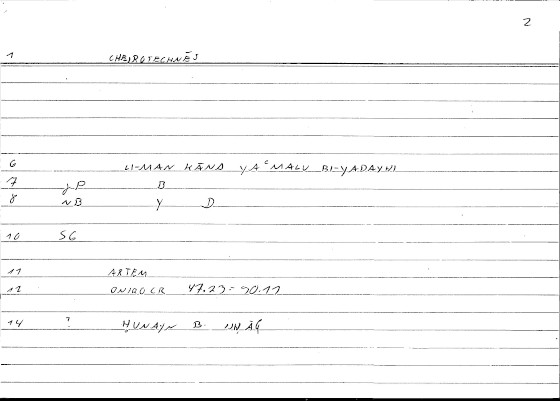 2
1 CHEIROTECHNĒS
6 LI-MAN KĀNA YAʿMALU BI-YADAYHI
7 P B
8 NB Y D
10 SG
11 ARTEM
12 47.23 = 90.11
14 ? ḤUNAYN B. ISḤĀQ